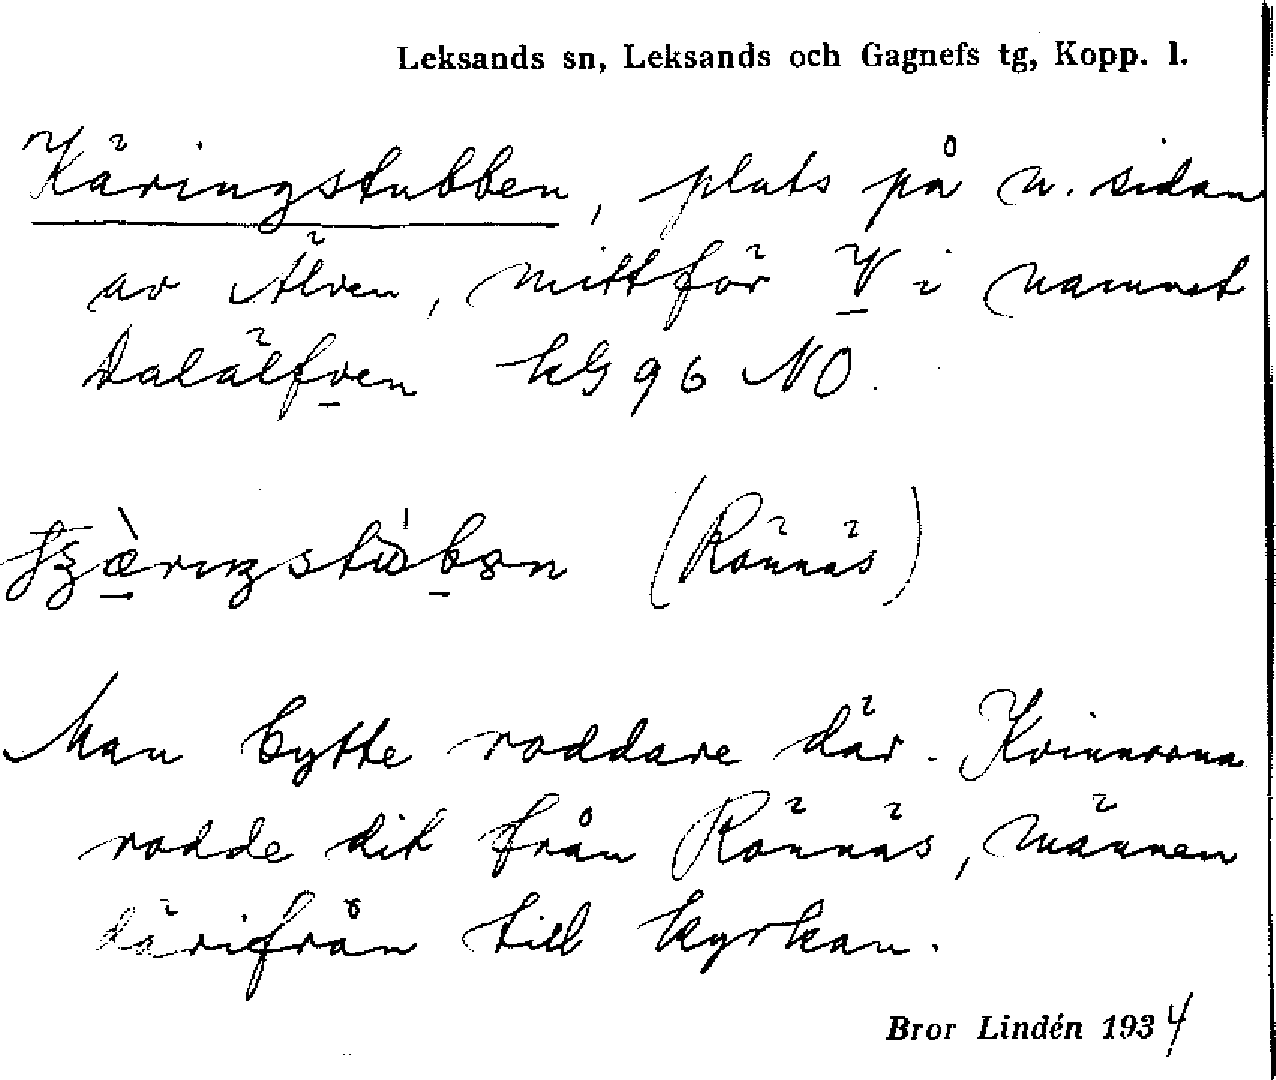 Leksands sn, Leksands och Gagnefs tg, Kopp. l.
Käringstubben, plats på n. sidan
av Älven, mittför V i namnet
Dalälfven kG 96 NO.
(Rönnäs)
Man bytte roddare där. Kvinnorna
rodde dit från Rönnäs, männen
därifrån till kyrkan.
Bror Lindén 1934